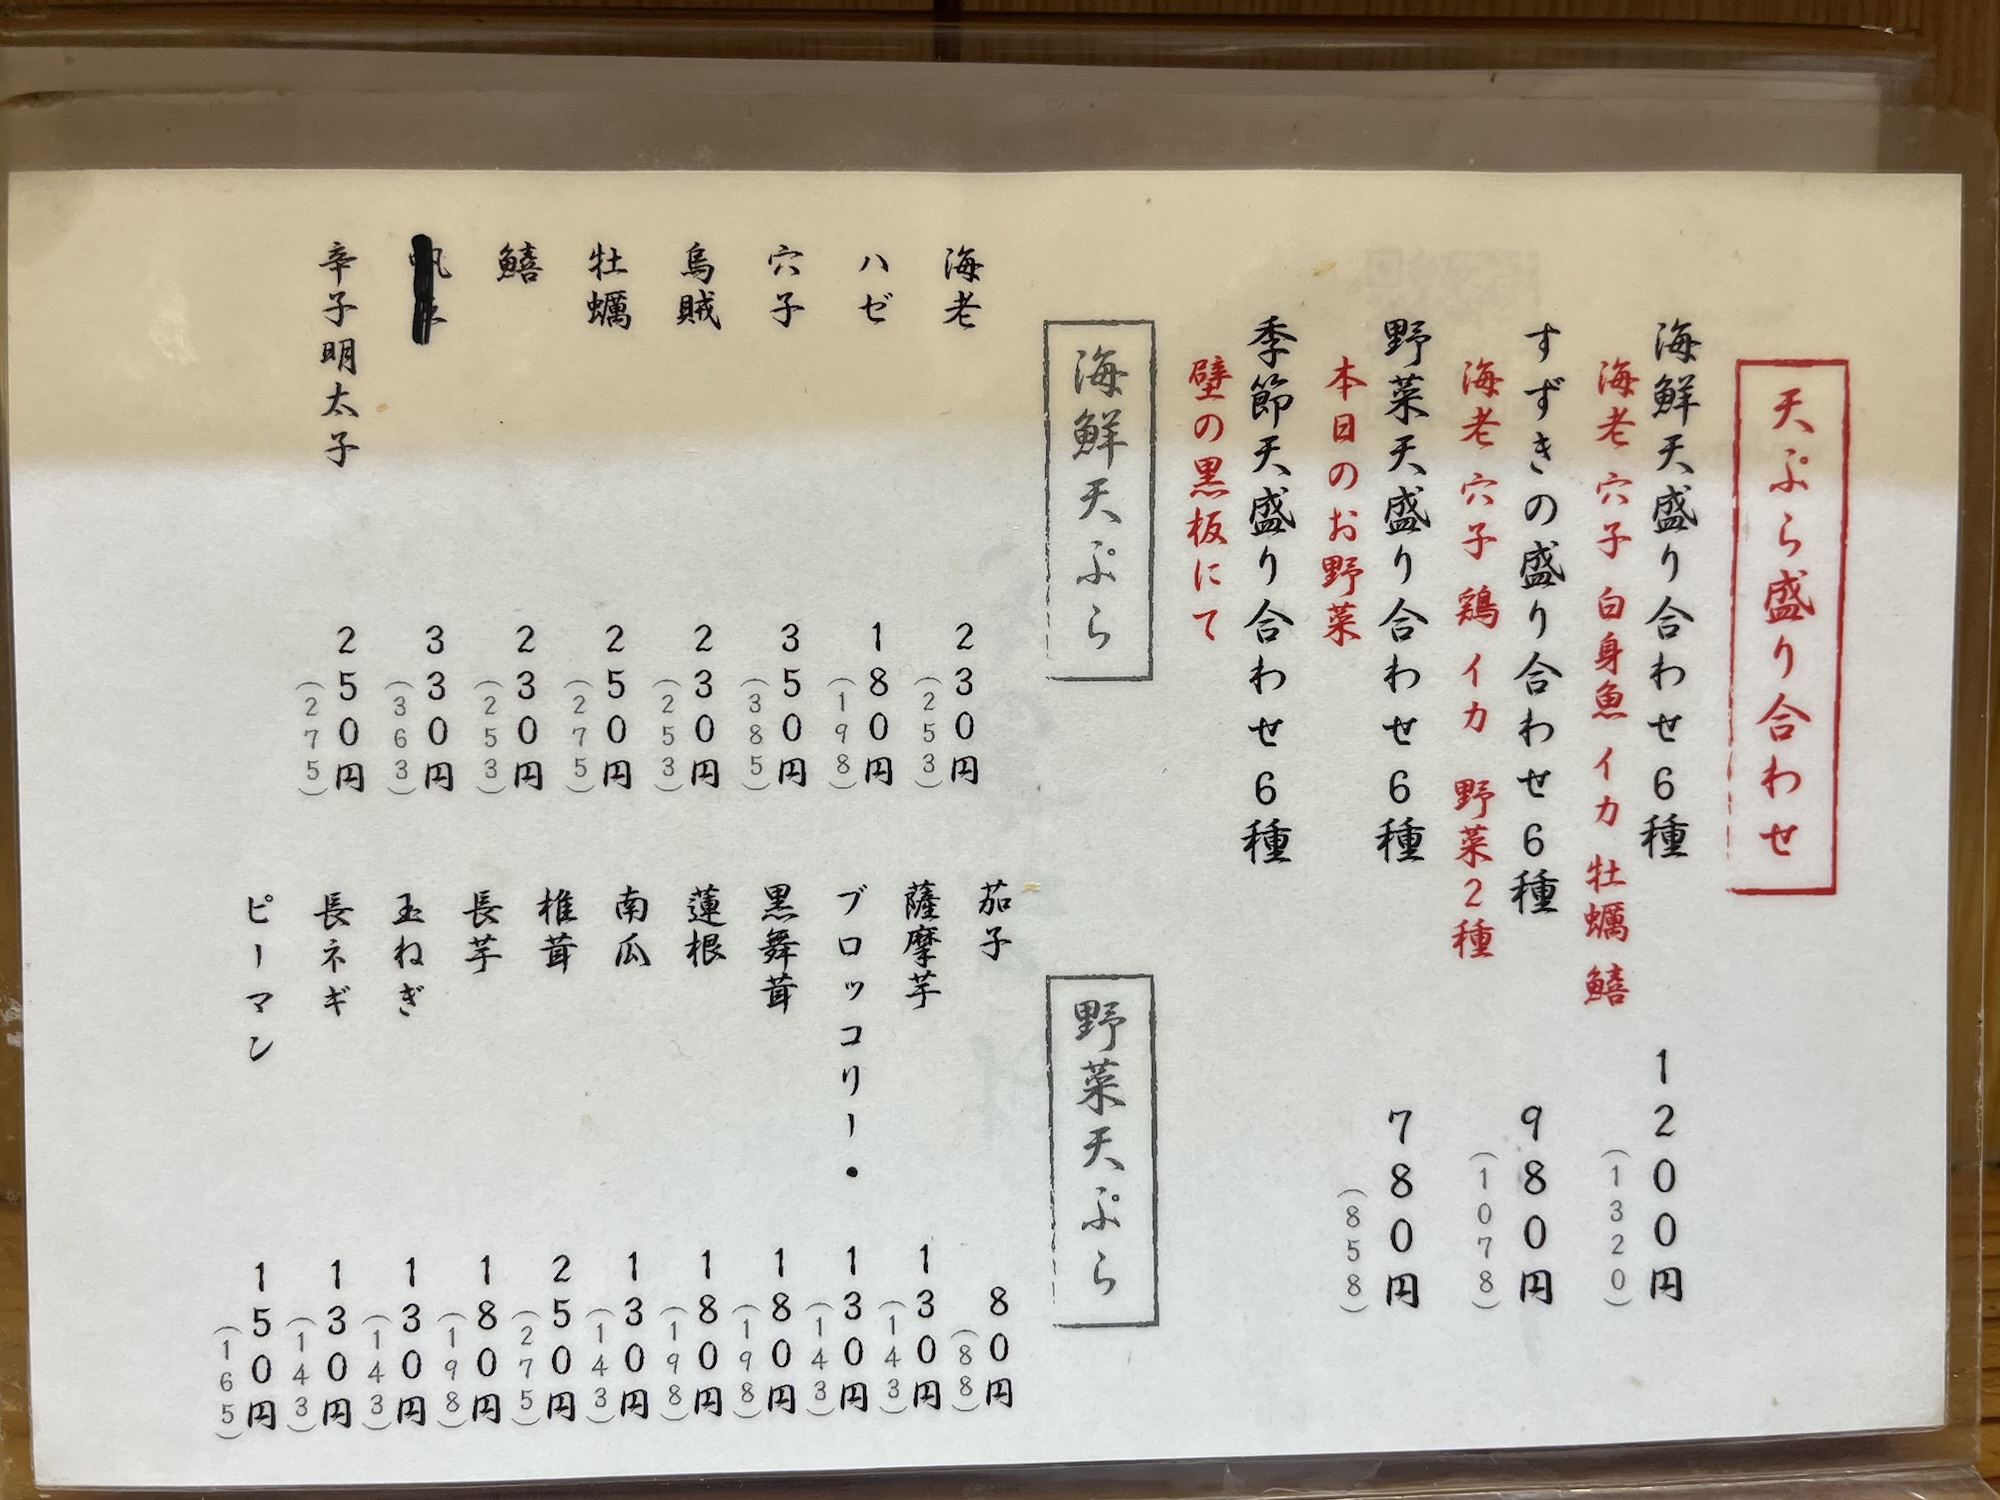 天ぷら盛り合わせ
海鮮天盛り合わせ6種
1200円
(1320)
海老 穴子 白身魚 イカ 牡蠣 鱚
すずきの盛り合わせ6種
980円
(1078)
海老 穴子 鶏 イカ 野菜2種
野菜天盛り合わせ6種
780円
(858)
本日のお野菜
季節天盛り合わせ6種
壁の黒板にて
海鮮天ぷら
海老
230円
(253)
ハゼ
180円
(198)
穴子
350円
(385)
烏賊
230円
(253)
牡蠣
250円
(275)
鱚
230円
(253)
330円
(363)
辛子明太子
250円
(275)
野菜天ぷら
茄子
80円
(88)
薩摩芋
130円
(143)
ブロッコリー・
130円
(143)
黒舞茸
180円
(198)
蓮根
180円
(198)
南瓜
130円
(143)
椎茸
250円
(275)
長芋
180円
(198)
玉ねぎ
130円
(143)
長ネギ
130円
(143)
ピーマン
150円
(165)